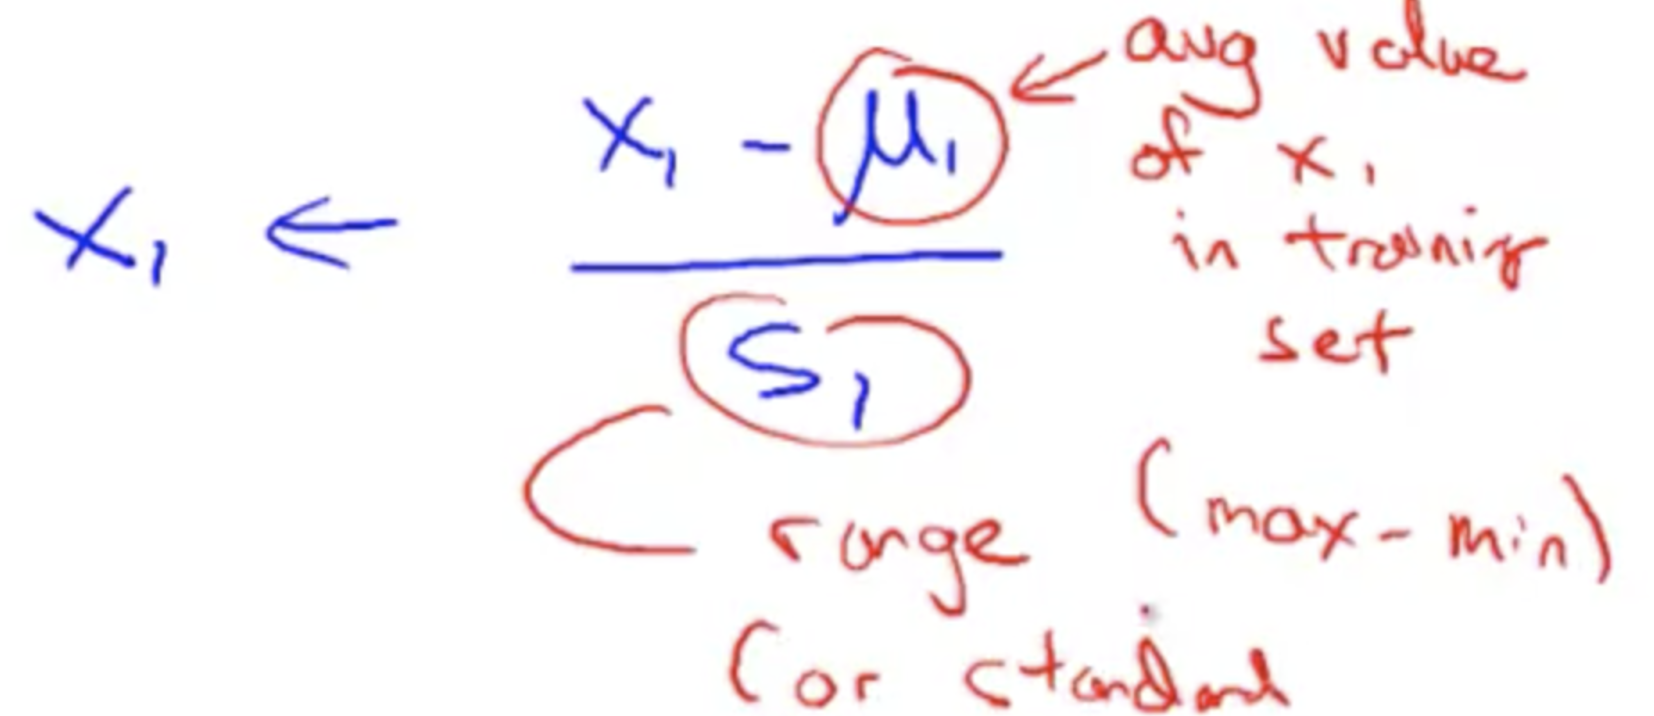 x₁ ← (x₁ - μ₁) / s₁
← avg value
of x₁
in training
set
range (max - min)
(or standard